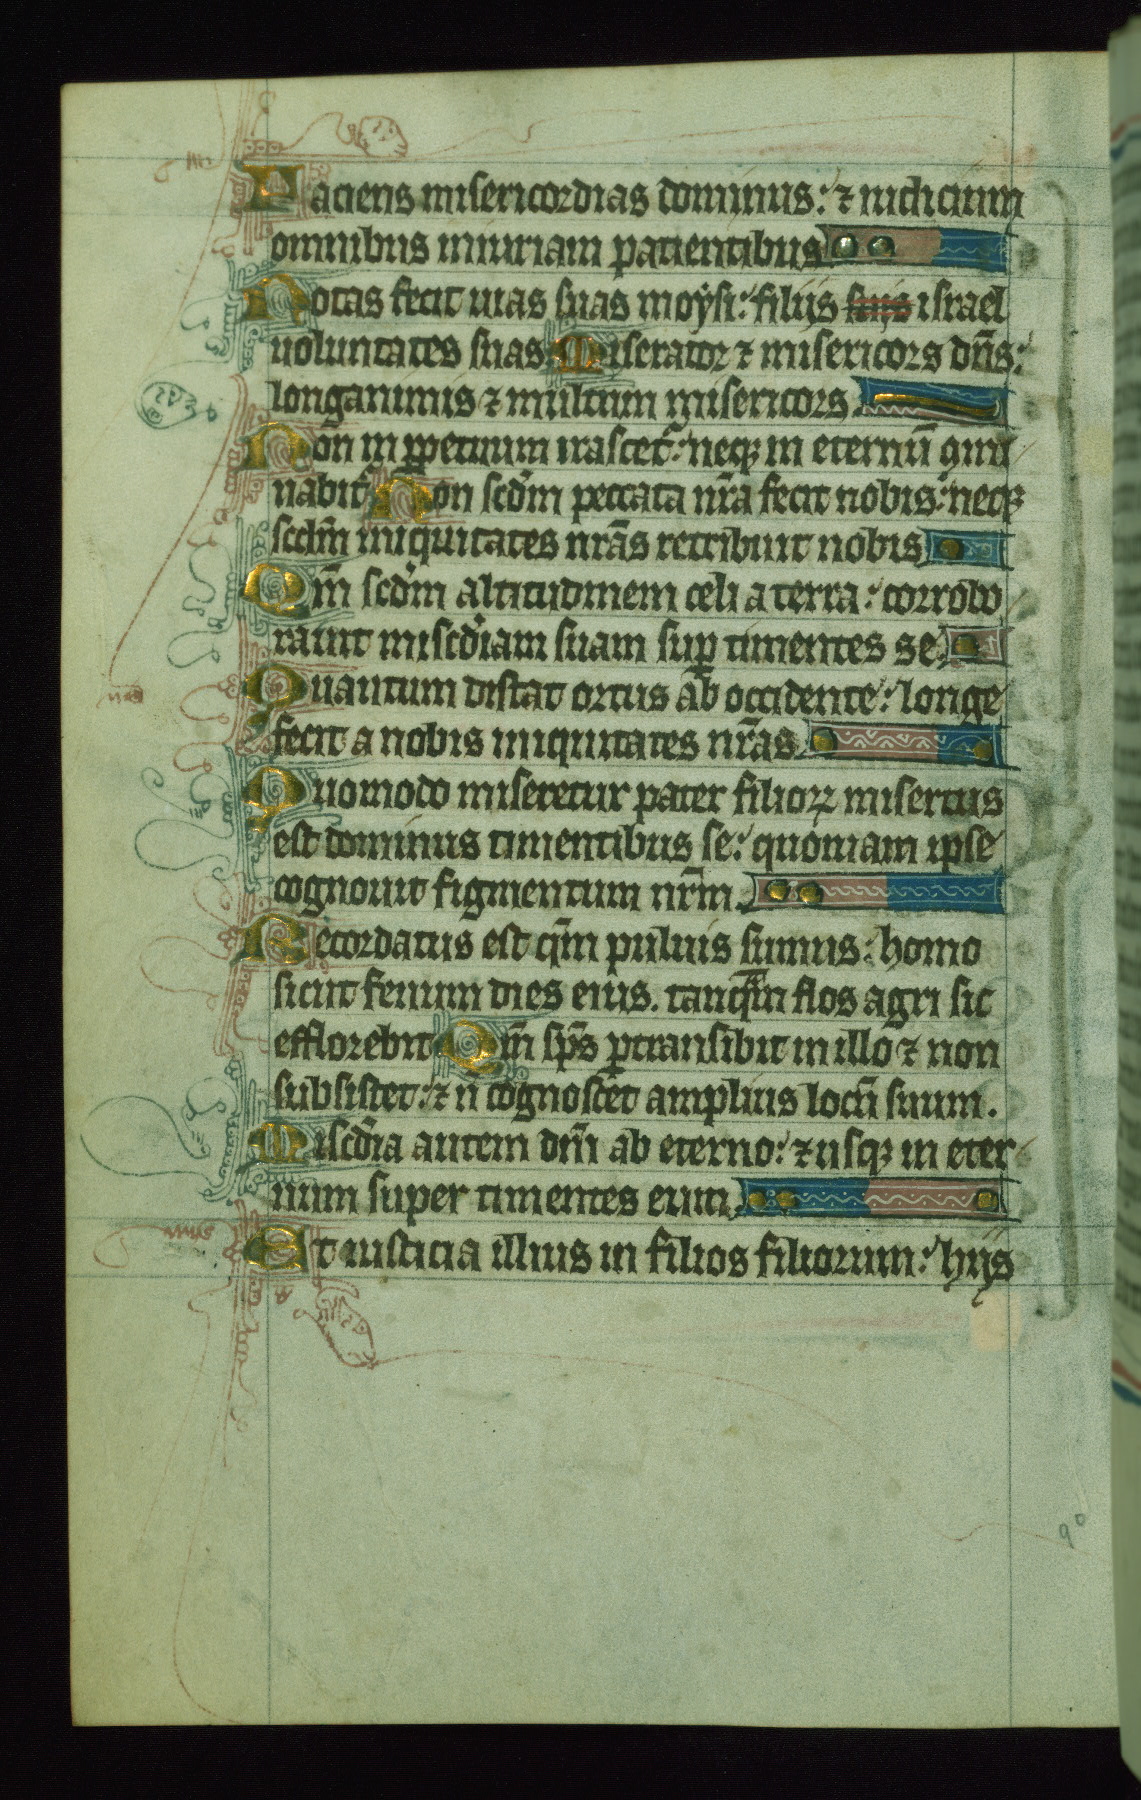 Faciens misericordias dominus: ⁊ iudicium
omnibus iniuriam patientibus
Notas fecit uias suas moysi: filijs suis israel
uoluntates suas Miserator ⁊ misericors dn̄s:
longanimis ⁊ multum misericors.
Non in ꝑpetuum irascet᷑: neqꝫ in eternū qmi
nabit᷑ Non scd̄m peccata nr̄a fecit nobis: neqꝫ
scd̄m iniquitates nr̄as retribuit nobis
Qm̄ scd̄m altitudinem celi a terra: corrobo
rauit misc̄diam suam suꝑ timentes se.
Quantum distat ortus ab occidente: longe
fecit a nobis iniquitates nr̄as
Quomodo miseretur pater filioꝝ misertus
est dominus timentibus se: quoniam ipse
cognouit figmentum nr̄m.
Recordatus est qm̄ puluis sumus: homo
sicut fenum dies eius. tanqm̄ flos agri sic
efflorebit Qm̄ sps̄ ꝑtransibit in illo ⁊ non
subsistet: ⁊ n̄ cognoscet amplius locū suum.
Misc̄dia autem dn̄i ab eterno: ⁊ usqꝫ in eter
num super timentes eum.
Et iusticia illius in filios filiorum: hijs
90